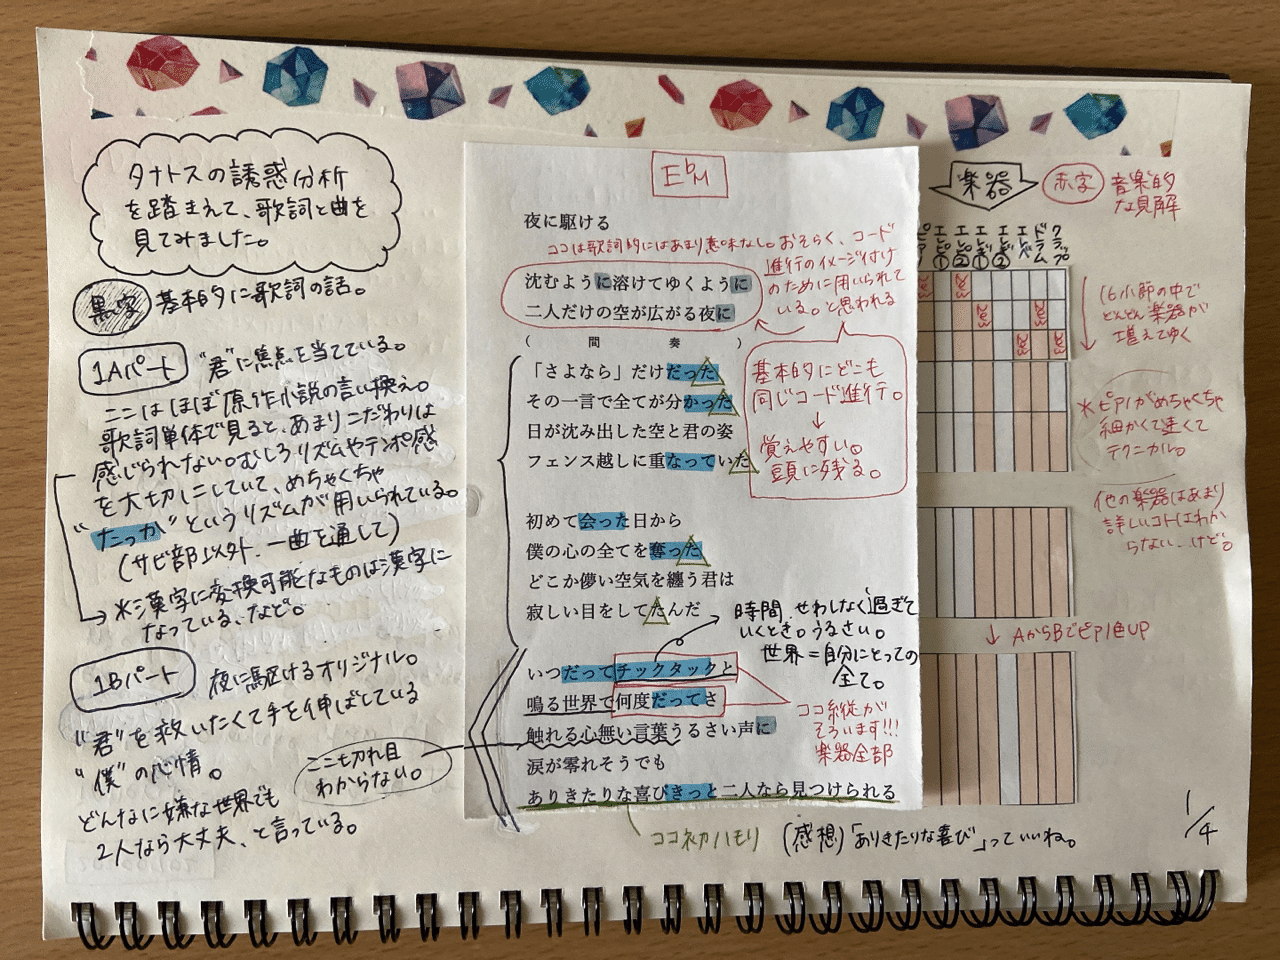 タナトスの誘惑分析
を踏まえて、歌詞と曲を
見てみました。
黒字 基本的に歌詞の話。
1Aパート "君"に焦点を当てている。
ここはほぼ原作小説の言い換え。
歌詞単体で見ると、あまりこだわりは
感じられない。むしろリズムやテンポ感
を大切にしていて、めちゃくちゃ
"たっか"というリズムが用いられている。
(サビ部以外、一曲を通して)
※漢字に変換可能なものは漢字に
なっている、など。
1Bパート 夜に駆けるオリジナル。
"君"を救いたくて手を伸ばしている
"僕"の心情。
どんなに嫌な世界でも
2人なら大丈夫、と言っている。
ここも切れ目
わからない。
E♭M
夜に駆ける
ココは歌詞的にはあまり意味なし。おそらく、コード
進行のイメージ付け
のために用いられて
いる。と思われる
沈むように溶けてゆくように
二人だけの空が広がる夜に
(間奏)
「さよなら」だけだった
その一言で全てが分かった
日が沈み出した空と君の姿
フェンス越しに重なっていた
基本的にどこも
同じコード進行。
↓
覚えやすい。
頭に残る。
初めて会った日から
僕の心の全てを奪った
どこか儚い空気を纏う君は
寂しい目をしてたんだ
時間、せわしなく過ぎて
いくとき。うるさい。
世界=自分にとっての
全て。
いつだってチックタックと
鳴る世界で何度だってさ
触れる心無い言葉うるさい声に
涙が零れそうでも
ありきたりな喜びきっと二人なら見つけられる
ココ縦が
そろいます!!!
楽器全部
ココネカハモリ
(感想)「ありきたりな喜び」っていいね。
楽器
赤字 音楽的
な見解
ドラム
クラップ
16小節の中で
どんどん楽器が
増えてゆく
※ピアノがめちゃくちゃ
細かくて速くて
テクニカル。
他の楽器はあまり
詳しいコトはわか
らない…けど。
↓ AからBでピアノ色UP
1/4